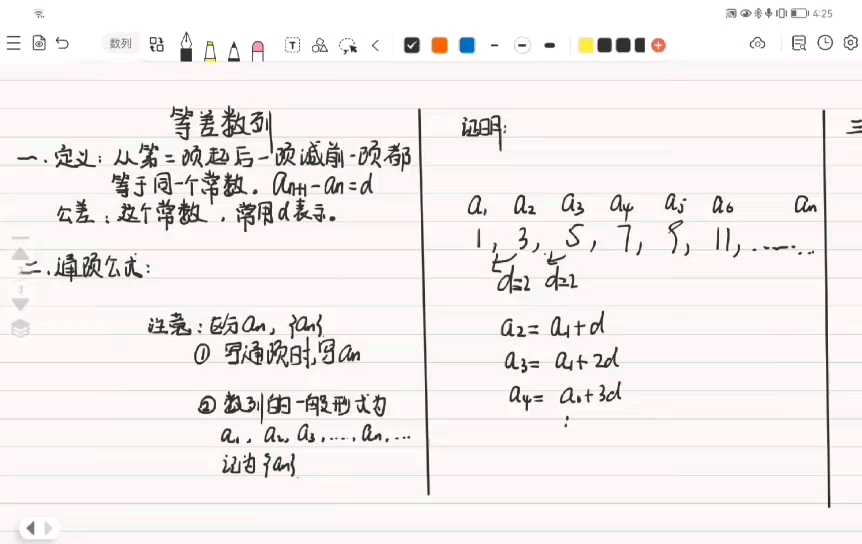 4:25
数列
T
等差数列
一.定义:从第二项起后一项减前一项都
等于同一个常数。an+1-an=d
公差:这个常数,常用d表示。
二.通项公式:
3
注意:区分an,{an}
① 写通项时,写an
② 数列的一般形式为
a1, a2, a3, ...., an, ...
记为{an}
证明:
a1 a2 a3 a4 a5 a6 an
1, 3, 5, 7, 9, 11, .......
d=2 d=2
a2=a1+d
a3=a1+2d
a4=a1+3d
⋮
三